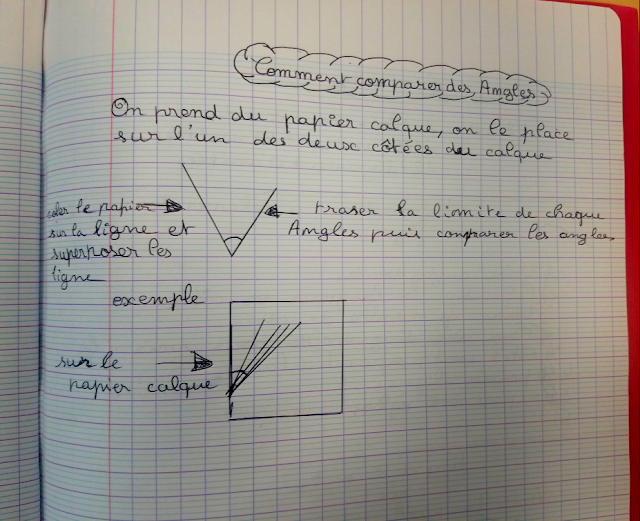 Comment comparer des Angles
On prend du papier calque, on le place
sur l'un des deux côtées du calque
caler le papier
sur la ligne et
superposer les
ligne
traser la liomite de chaque
Angles puis comparer les angles
exemple
sur le
papier calque